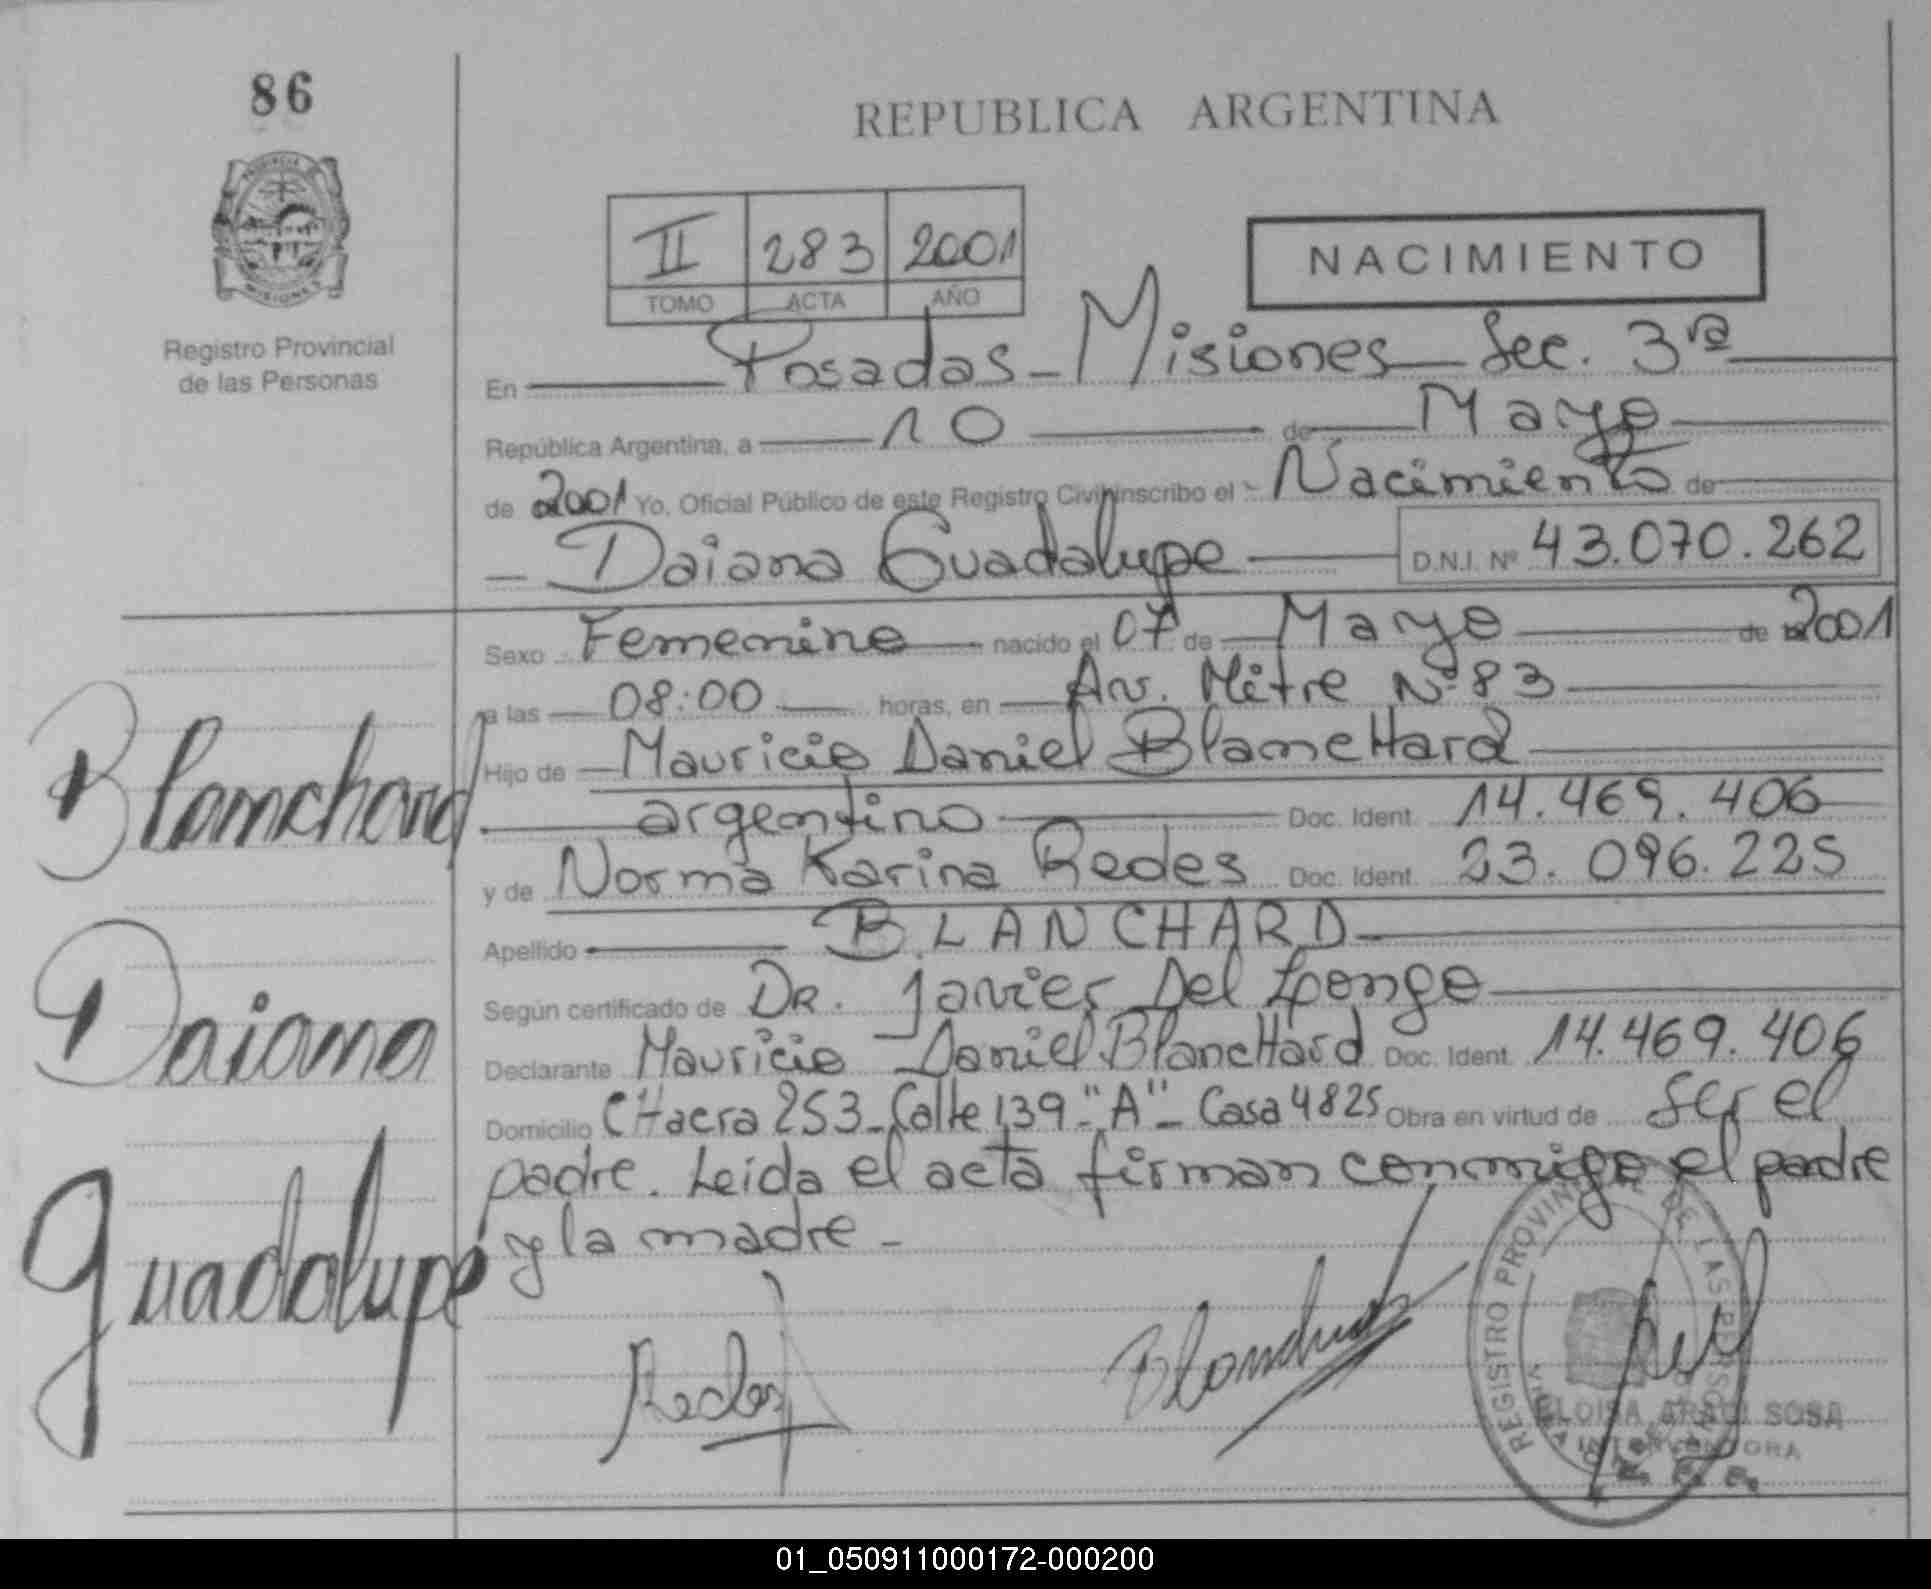 86
REPUBLICA ARGENTINA
PROVINCIA
MISIONES
Registro Provincial
de las Personas
II 283 2001
TOMO ACTA AÑO
NACIMIENTO
En Posadas - Misiones Sec. 3ra
República Argentina, a 10 de Mayo
de 2001 Yo, Oficial Público de este Registro Civil inscribo el - Nacimiento de
Daiana Guadalupe D.N.I. Nº 43.070.262
Sexo Femenino nacido el 07 de Mayo de 2001
a las 08:00 horas, en Av. Mitre Nº 83
Hijo de Mauricio Daniel BlancHard
argentino Doc. Ident. 14.469.406
y de Norma Karina Redes Doc. Ident. 23.096.225
Apellido BLANCHARD
Según certificado de DR. Javier Del Longo
Declarante Mauricio Daniel BlancHard Doc. Ident. 14.469.406
Domicilio CHacra 253 - Calle 139 - "A" - Casa 4825 Obra en virtud de Ser el
padre. Leida el acta firman conmigo el padre
y la madre -
Blanchard
Daiana
Guadalupe
Redes
Blanchard
REGISTRO PROVINCIAL DE LAS PERSONAS
ELOISA ARACI SOSA
INTERVENTORA
01_050911000172-000200